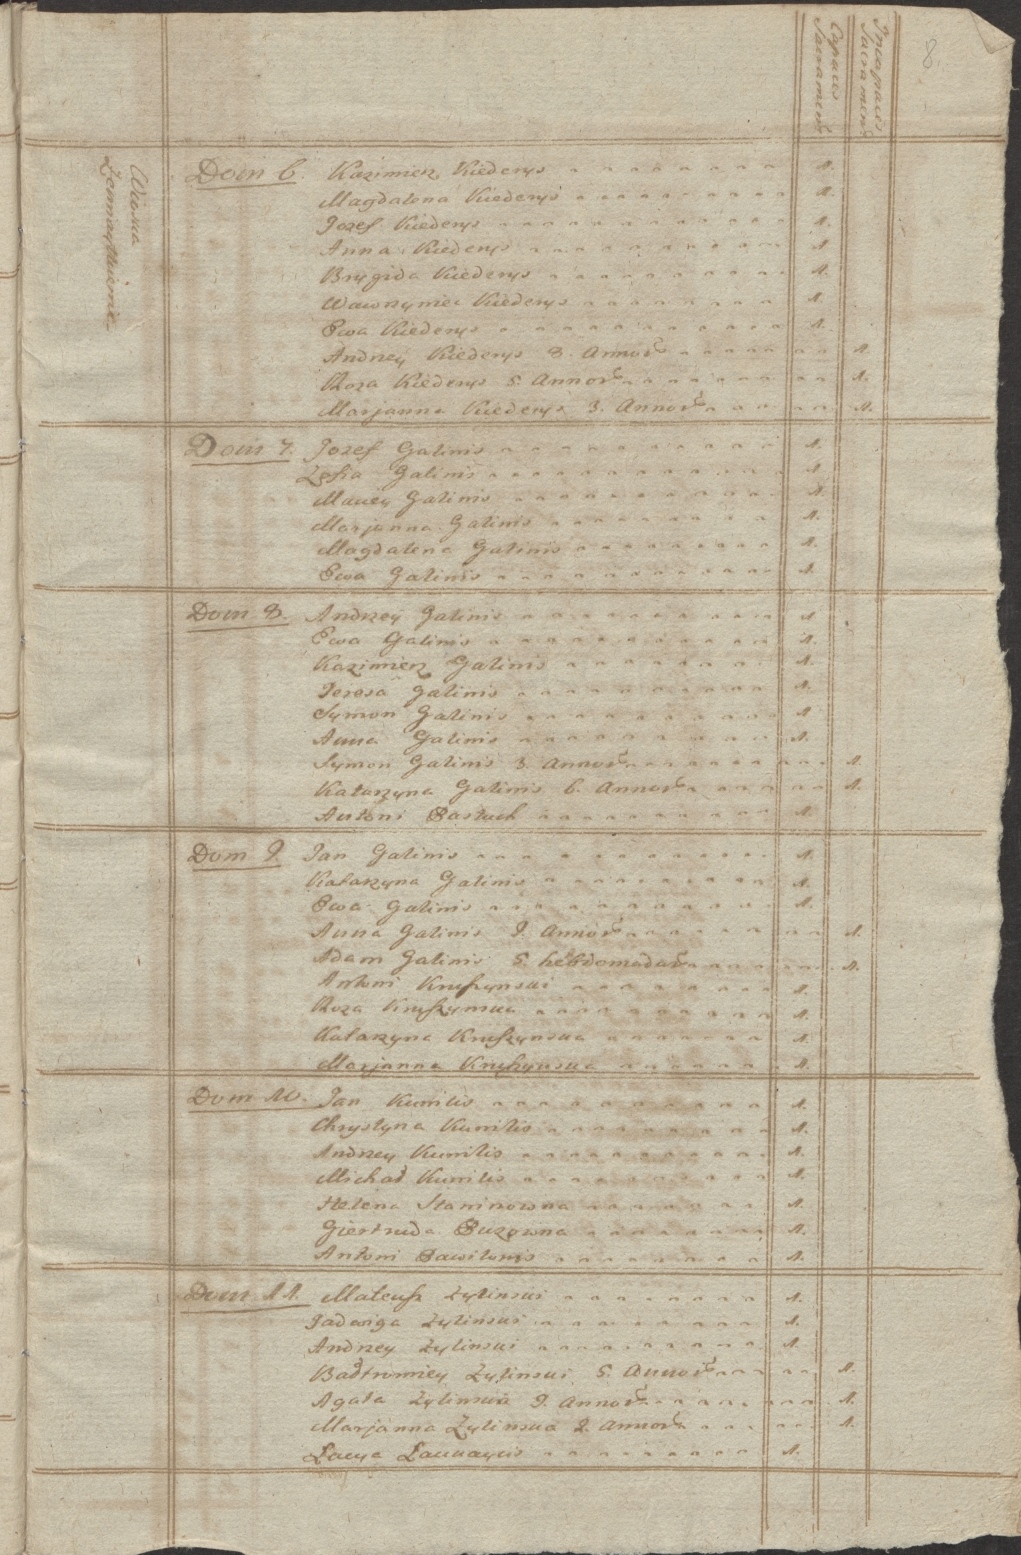 Capaces Sacramen
Incapaces Sacramen
8.
Dom 6. Kazimierz Kiederys 1.
Magdalena Kiederys 1.
Jozef Kiederys 1.
Anna Kiederys 1
Brygida Kiederys 1.
Wawrzyniec Kiederys 1.
Ewa Kiederys 1.
Andrzey Kiederys 8. Annor 1.
Roza Kiederys 5. Annor 1.
Marjanna Kiederys 3. Annor 1.
Dom 7. Jozef Galinis 1.
Zofia Galinis 1.
Maciey Galinis 1.
Marjanna Galinis 1.
Magdalena Galinis 1.
Ewa Galinis 1.
Dom 8. Andrzey Galinis 1
Ewa Galinis 1.
Kazimierz Galinis 1.
Teresa Galinis 1.
Symon Galinis 1
Anna Galinis 1.
Symon Galinis 3. Annor 1.
Katarzyna Galinis 6. Annor 1.
Antoni Pastuch 1.
Dom 9. Jan Galinis 1.
Katarzyna Galinis 1.
Ewa Galinis 1.
Anna Galinis 9. Annor 1.
Adam Galinis 5. hebdomadar 1.
Antoni Kruszynski 1.
Roza Kruszynska 1.
Katarzyna Kruszynska 1.
Marjanna Kruszynska 1.
Dom 10. Jan Kunilis 1.
Chrystyna Kunilis 1.
Andrzey Kunilis 1.
Michał Kunilis 1.
Helena Staninowna 1.
Giertruda 1.
Antoni 1.
Dom 11. Mateusz Zylinski 1.
Jadwiga Zylinski 1.
Andrzey Zylinski 1.
Bałtromiey Zylinski 5. Annor 1.
Agata Zylinska 9. Annor 1.
Marjanna Zylinska 2. Annor 1.
1.